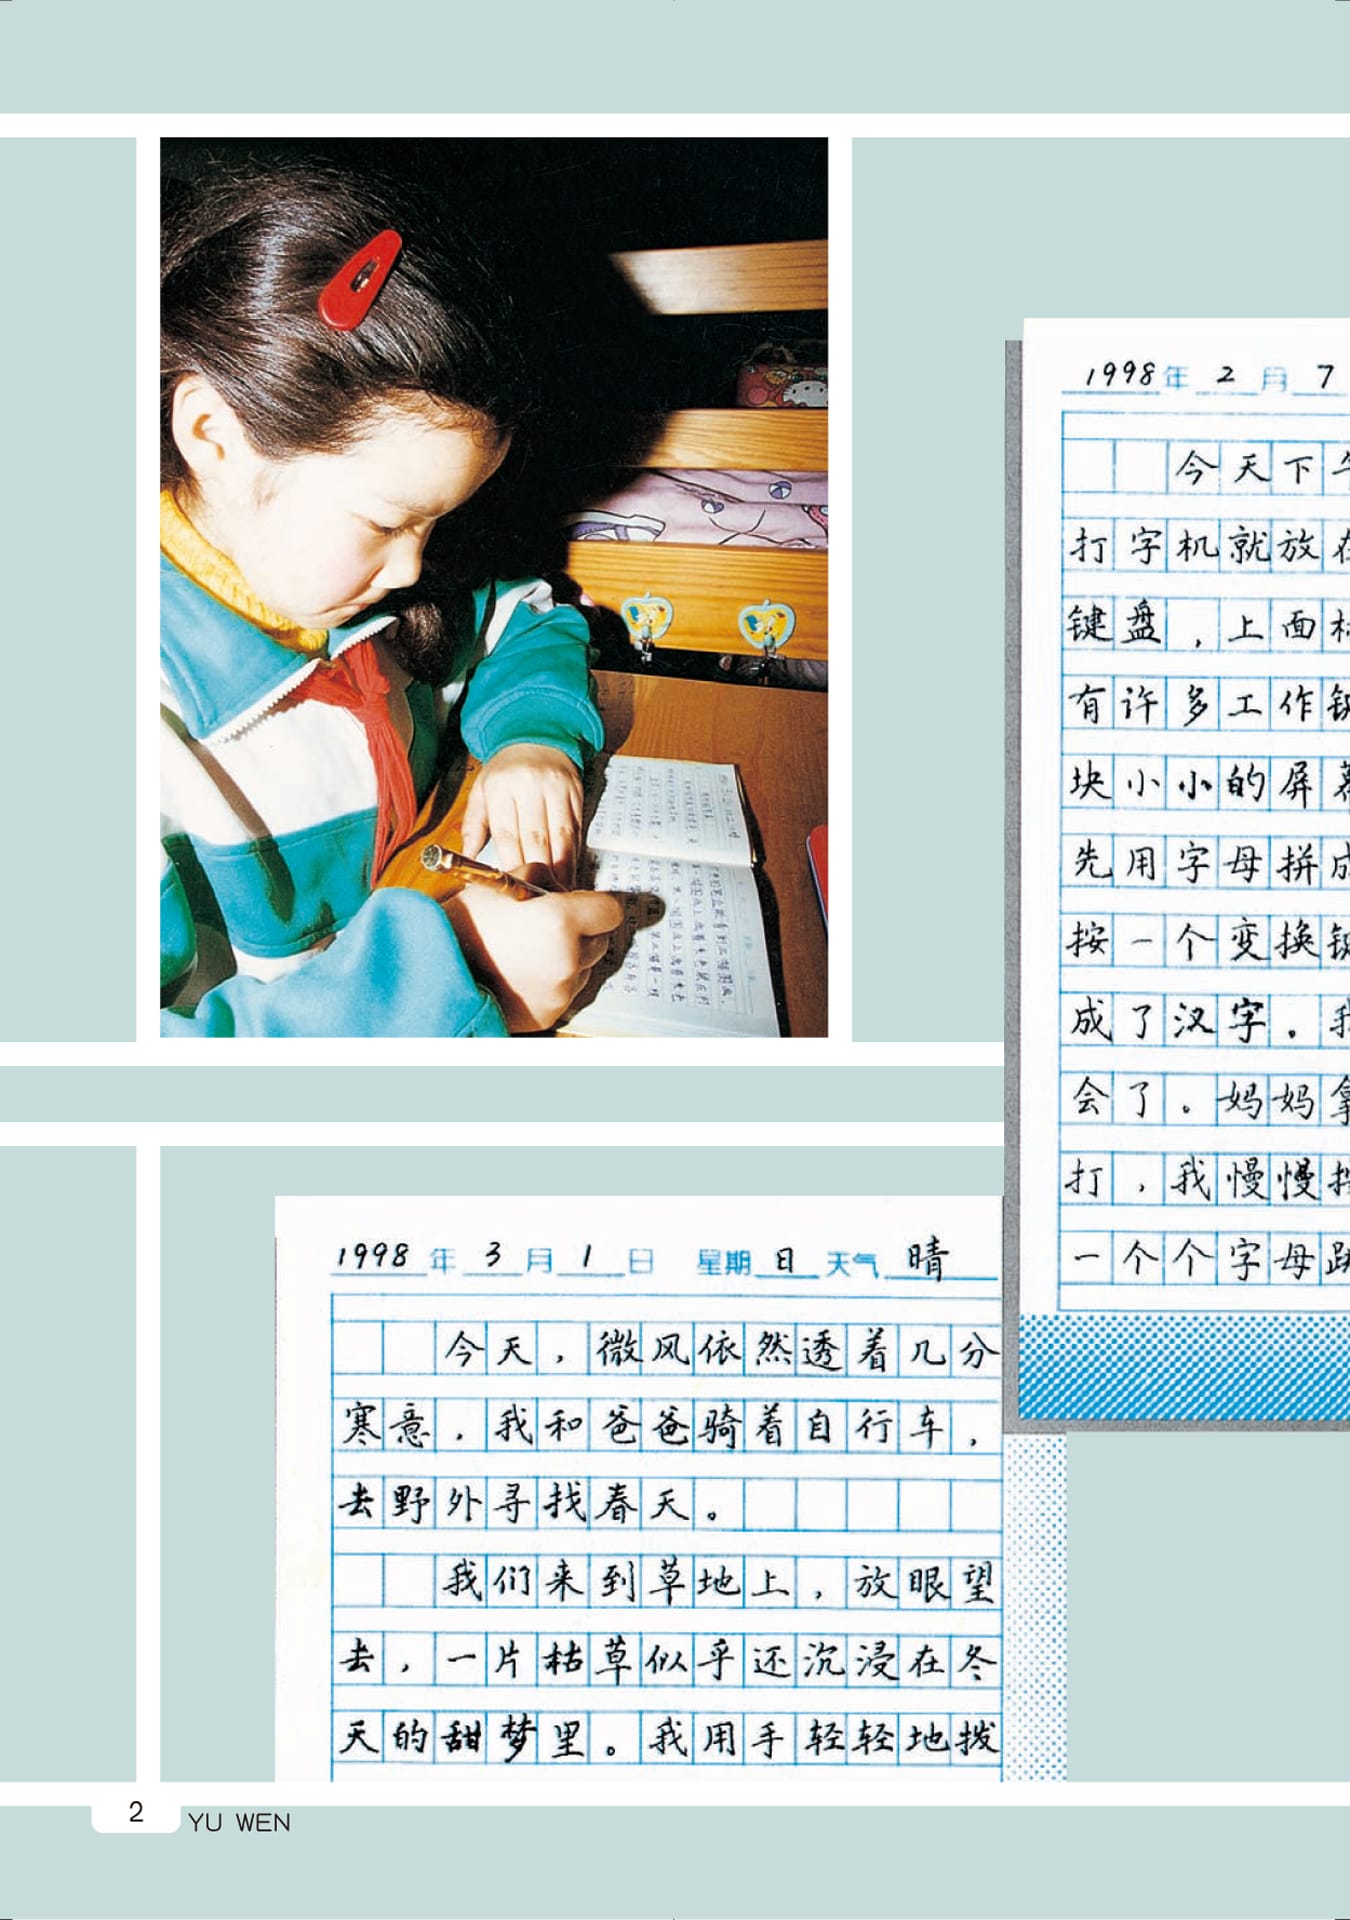 1998年2月7
今天下午
打字机就放在
键盘，上面标
有许多工作键
块小小的屏幕
先用字母拼成
按一个变换键
成了汉字。我
会了。妈妈拿
打，我慢慢按
一个个字母跳
1998年3月1日 星期日 天气 晴
今天，微风依然透着几分
寒意，我和爸爸骑着自行车，
去野外寻找春天。
我们来到草地上，放眼望
去，一片枯草似乎还沉浸在冬
天的甜梦里。我用手轻轻地拨
2
YU WEN